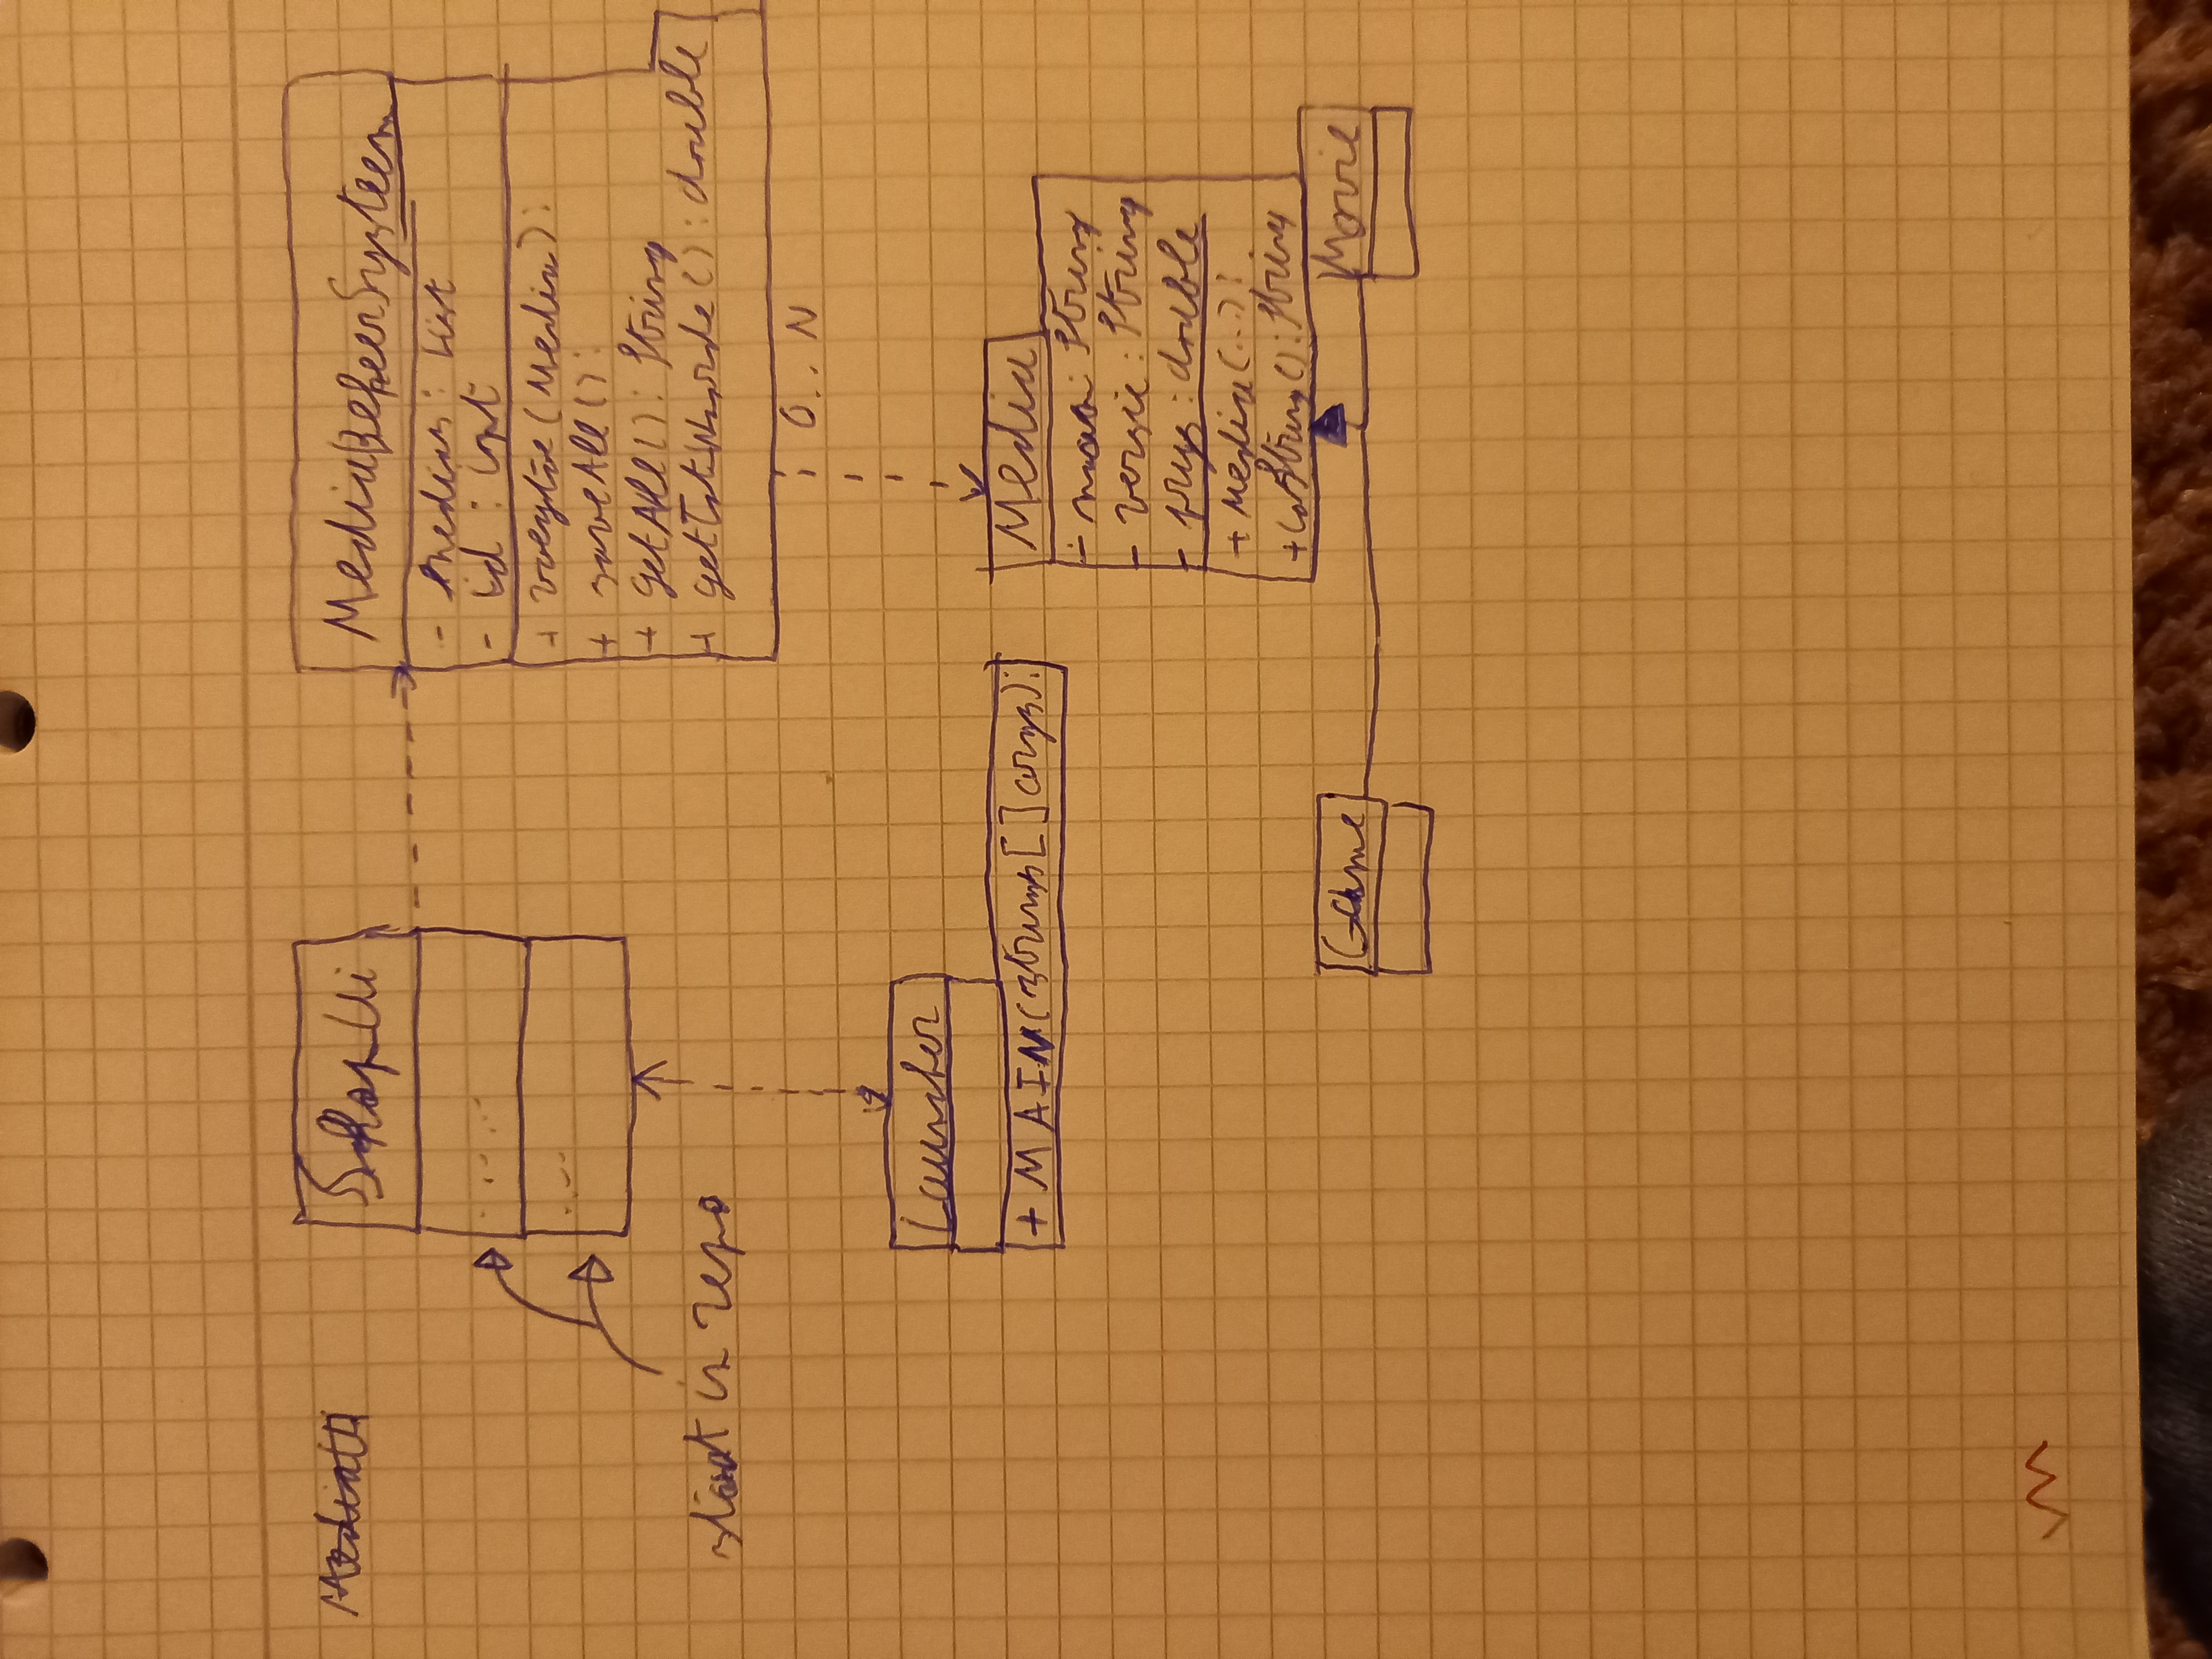 ShopUi
MediaBeheerSysteem
- medias: List
- id : int
+ voegtoe(Media):
+ saveAll():
+ getAll(): String
+ getTotWaarde(): double
.....
....
staat in repo
0..N
Launcher
+ MAIN(strings[] args):
Media
- naam: String
- versie: String
- prijs: double
+ Media(...):
+ toString(): String
Game
Movie